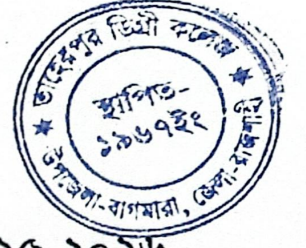 তাহেরপুর ডিগ্রী কলেজ
স্থাপিত-
১৯৬৭ইং
উপজেলা-বাগমারা, জেলা-রাজশাহী